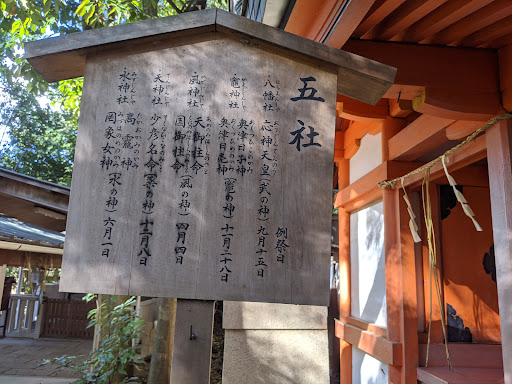 五社
例祭日
八幡社
応神天皇(武の神) 九月十五日
竈神社
奥津日子神
奥津日女神(竈の神) 十一月二十八日
風神社
天御柱命
国御柱命(風の神) 四月四日
天神社
少彦名命(薬の神) 月八日
水神社
高龗神
罔象女神(水の神) 六月一日